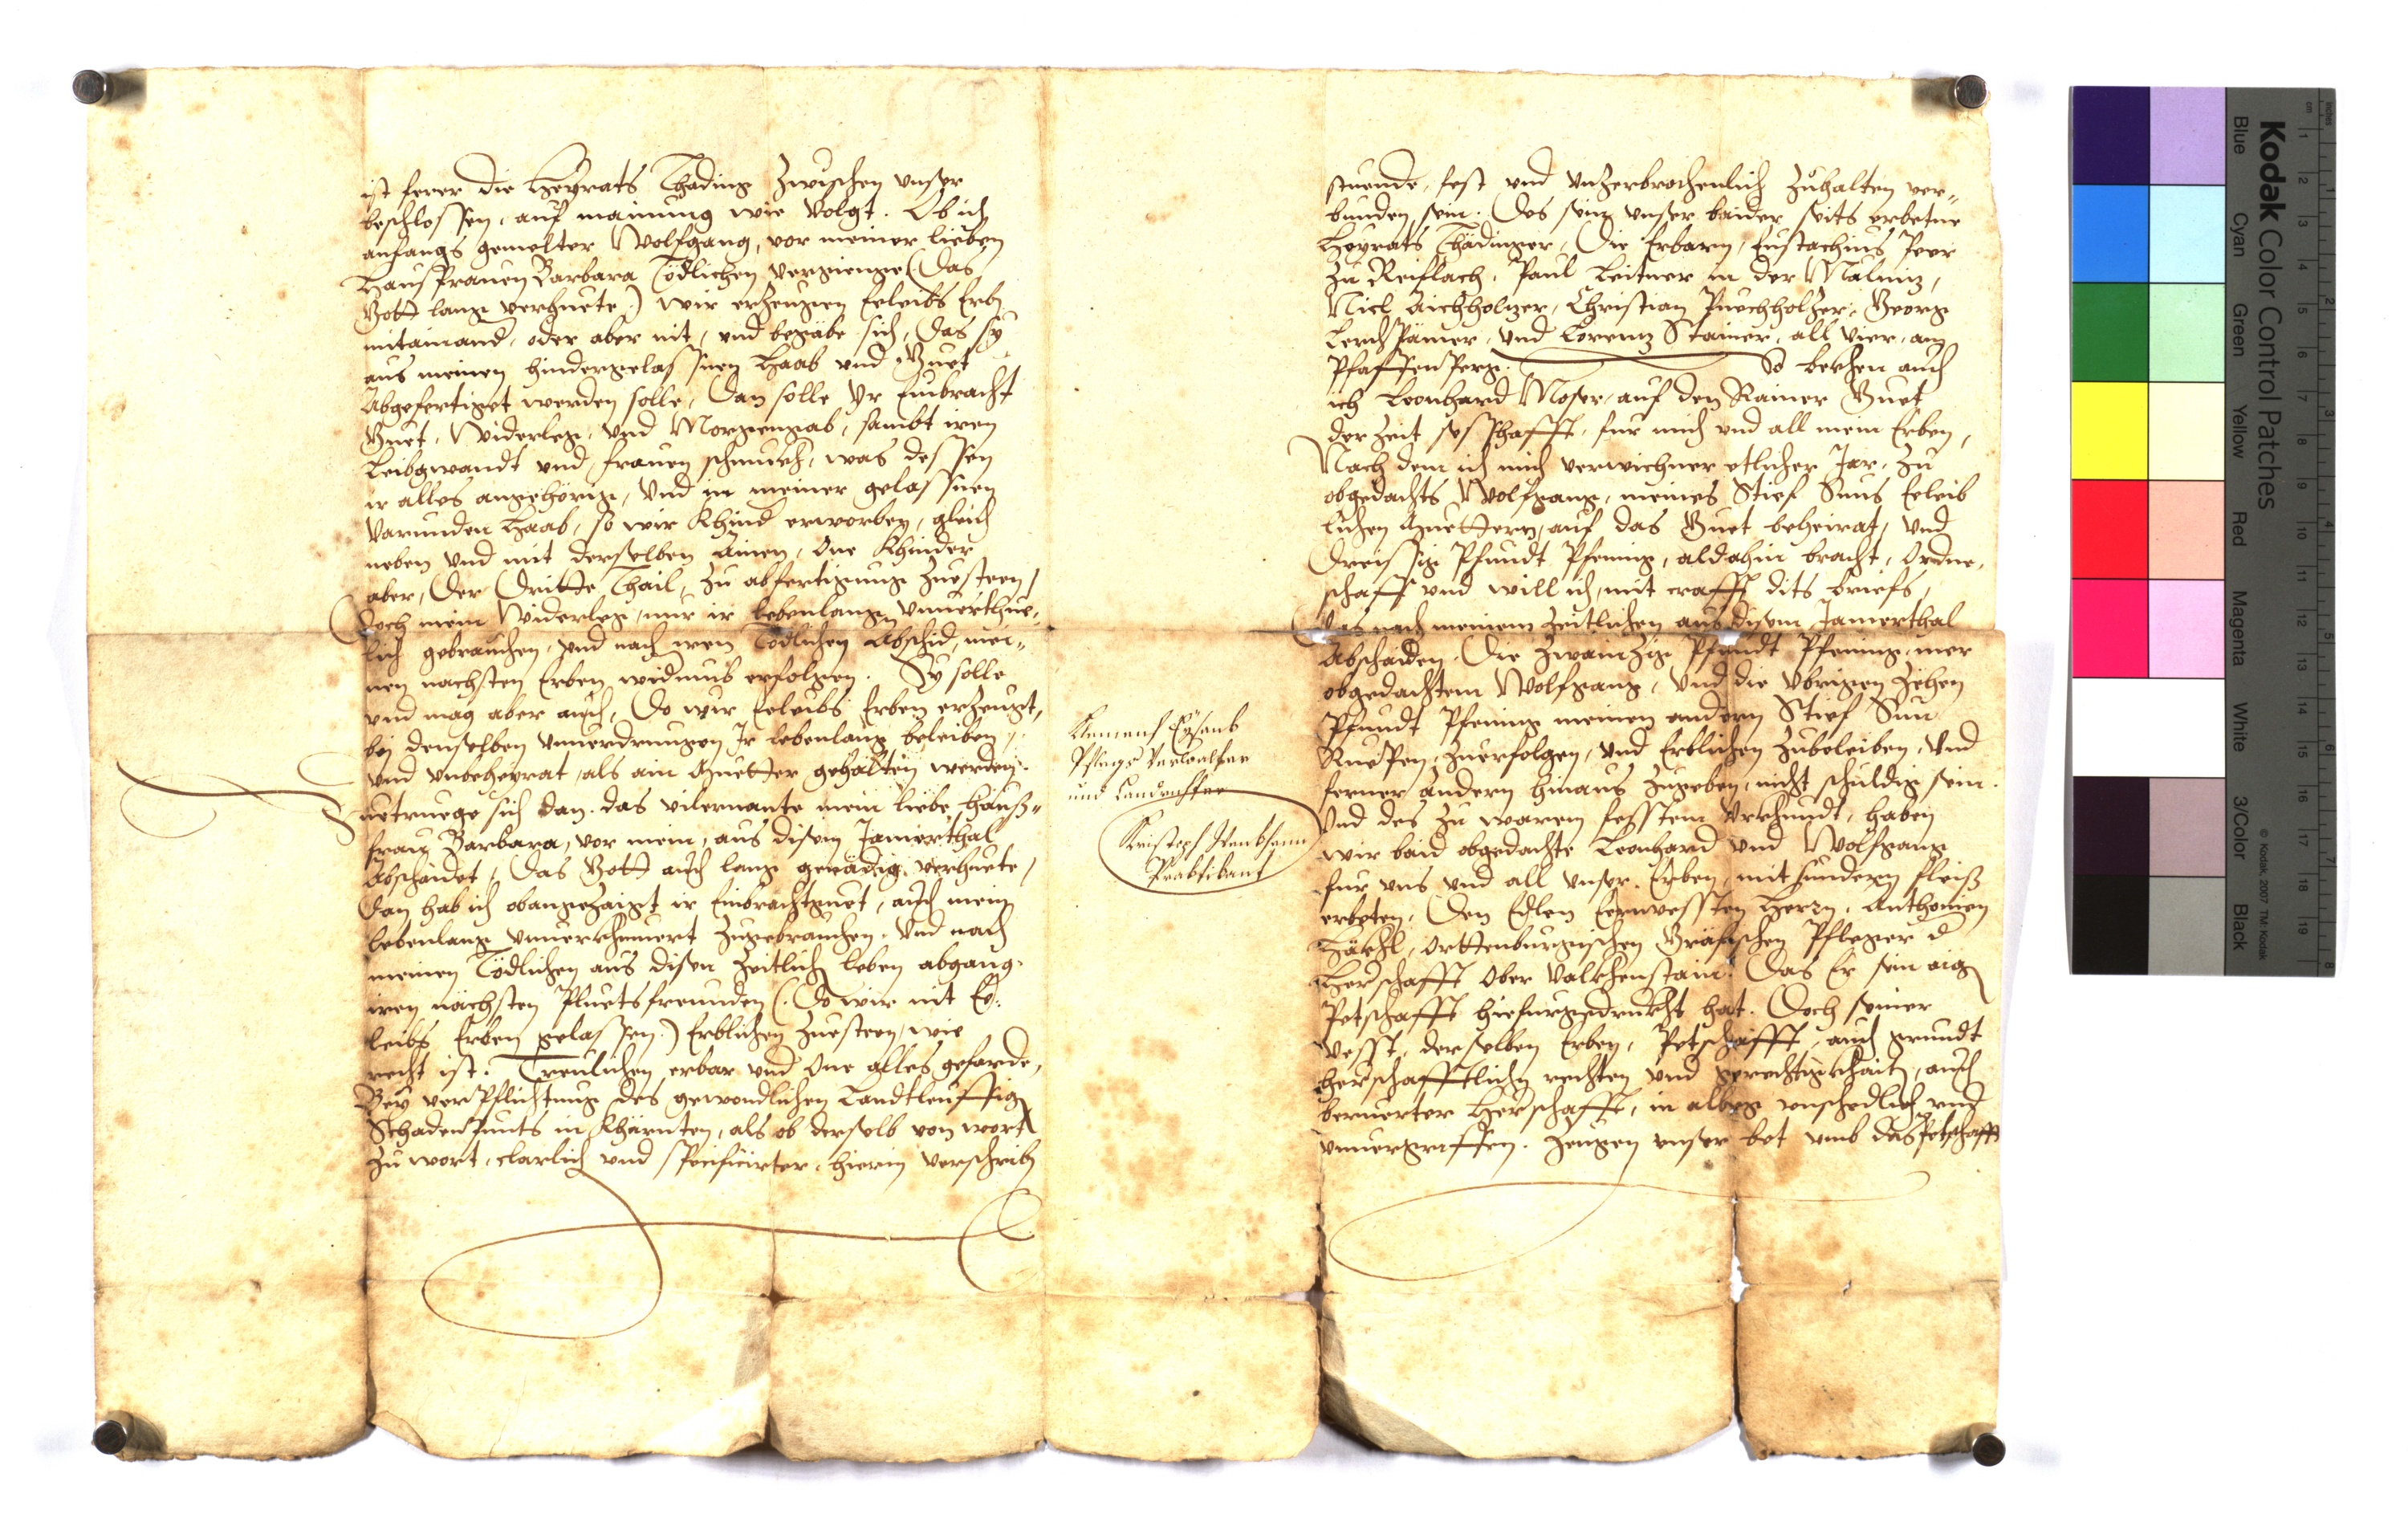 ist ferer die Heyrats Thading zwischen vnser
beschlossen, auf mainung wie Volgt. Ob ich
anfangs gemelter Wolfgang, vor meiner lieben
Hausfrauen Barbara Tödlichen vergienge (Das
Gott lang verhuete) wir erzeugen Eeleibs Erbn
mitainand, oder aber nit, vnd begäbe sich, das sy
aus meinen hindergelassnen Haab vnd Guet
Abgefertiget werden solle, Dan solle Yr Einbracht
Guet, Widerleg, vnd Morgengab, sambt iren
Leibgwandt vnd frauen schmuckh, was dessen
ir alles angehörig, Vnd in meiner gelassnen
Varunden Haab, so wir Khind erworben, gleich
neben vnd mit derselben Ainen, One Khinder
aber, Der Dritte Thail, zu abfertigung zuesteen,
Doch mein Widerleg, nur ir lebenlang vnuerthue-
lich gebrauchen, vnd nach iren Tödlichen Abschid, mei-
nen nachsten Erben widumb erfolgen. Sy solle
vnd mag aber auch, Do wir Eeleibs Erben erzeugt,
bei denselben vnuerdrungen Ir lebenlang beleiben,
vnd vnbeheyrat, als ain Muetter gehalten werden.
uetruege sich dan. das vilernante mein liebe Hauß-
frau Barbara, vor mein, aus disem Jamerthal
Abschaidet, Das Gott auch lang genädig verhuete,
Dan hab ich obangezaigt ir Einbrachtguet, auch mein
lebenlang vnuerkhumert zugebrauchen, Vnd nach
meinen Tödlichen aus disen Zeitlich leben abgang,
iren nächsten Pluetsfreunden (Do wir nit Ee-
leibs Erben gelassen) Erblichen zuesteen, wie
recht ist. Treulichen, erbar vnd One alles gefarde,
Bey verpflichtung des gewondlichen Landtleuffign
Schadenpunts in Khärnten, als ob derselb von wort
zu wort, clarlich vnd specificirter, hierin verschribn
Klement
Pflegs Verwalter
und Landrichter
Kristoph
Praktikant
stuende, fest vnd Vnzerbrochenlich zuhalten ver-
bunden sein. Des sein vnser baider seits erbetne
Heyrats Thädinger, Die Erbarn, Eustachius Peer
zu Reiflach, Paul Leitner in der Malniz,
Nicl Aichholzer, Christian Puechholzer, Georg
Lerchpämer, vnd Lorenz Stainer, all Vier, am
Pfaffenperg. So bekhen auch
ich Leonhard Moser, auf den Rainer Guet
der Zeit sesshafft, fur mich vnd all mein Erben,
Nach dem ich mich verwichner etlicher Jar, zu
obgedachts Wolfgang, meines Stief Suns Eeleib
lichen Muettern, auf das Guet beheirat, vnd
Dreissig Pfundt Pfening, aldahin bracht, Ordne,
schaff vnd will ich, mit crafft dits briefs,
Das nach meinem Zeitlichen aus disem Jamerthal
Abschaiden, Die Zwainzig Pfundt Pfening, mer
obgedachtem Wolfgang, Vnd die Vbrigen Zehen
Pfundt Pfening meinen andern Stief Sun
Ruepen, zuerfolgen, vnd Erblichen zubeleiben, Vnd
ferner andern hinaus zugeben, nicht schuldig sein.
Vnd des zu warem fesstem Vrkhundt, haben
wir baid obgedachte Leonhard vnd Wolfgang
fur vns vnd all vnser Erben, mit sunderm fleiß
erbeten, Den Edlen Eernvessten Herrn, Anthonien
Orttenburgischen Gräfischen Pfleger d
Herschafft Ober Valkhenstain. Das Er sein aign
Petschafft hiefurgedruckht hat. Doch seiner
Vesst, derselben Erben, Petschafft, auch grundt
herschafftlichn rechten vnd gerechtigkhait, auch
beruerter Herschafft, in allweg vnschedlich vnd
vnuergriffen. Zeugen vnser bet vmb das Petschafft